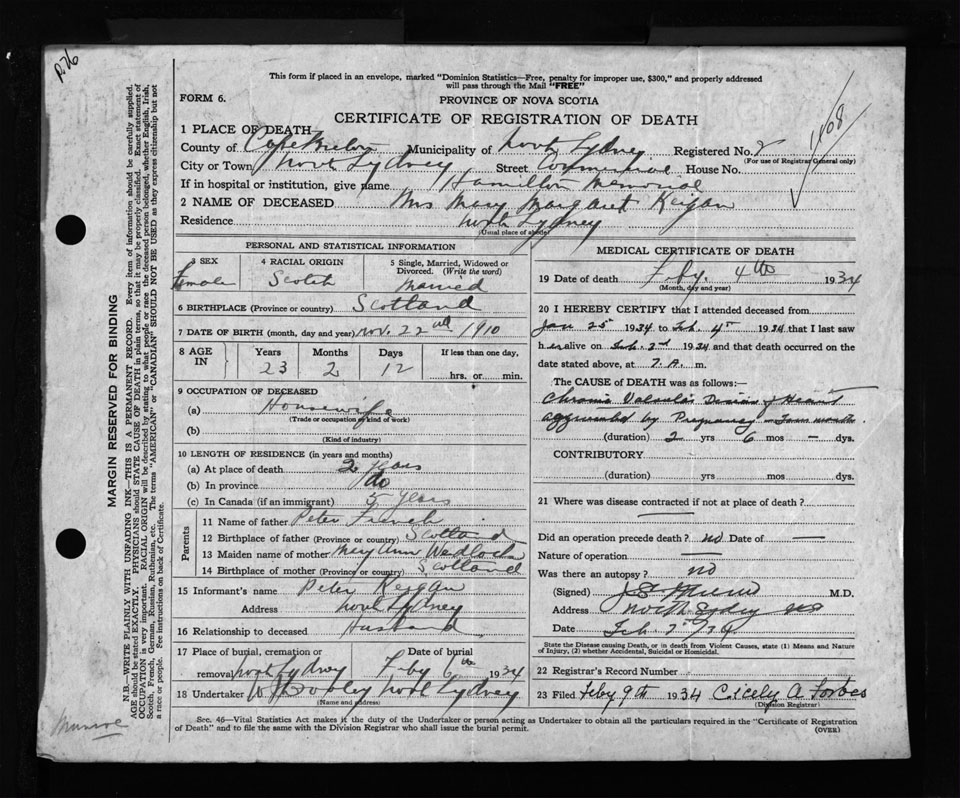 R76
This form if placed in an envelope, marked "Dominion Statistics—Free, penalty for improper use, $300," and properly addressed
will pass through the Mail "FREE"
FORM 6.
PROVINCE OF NOVA SCOTIA
CERTIFICATE OF REGISTRATION OF DEATH
1468
1 PLACE OF DEATH—
County of Cape Breton Municipality of North Sydney Registered No. 2
(For use of Registrar General only)
City or Town North Sydney Street Commercial House No.
If in hospital or institution, give name Hamilton Memorial
2 NAME OF DECEASED Mrs Mary Margaret Keigan
Residence North Sydney
(Usual place of abode)
PERSONAL AND STATISTICAL INFORMATION
3 SEX 4 RACIAL ORIGIN 5 Single, Married, Widowed or
Divorced. (Write the word)
Female Scotch Married
6 BIRTHPLACE (Province or country) Scotland
7 DATE OF BIRTH (month, day and year) Nov. 22nd 1910
8 AGE IN Years Months Days If less than one day.
23 2 12 hrs. or min.
9 OCCUPATION OF DECEASED
(a) Housewife
(Trade or occupation or kind of work)
(b)
(Kind of industry)
10 LENGTH OF RESIDENCE (in years and months)
(a) At place of death 2 years
(b) In province do
(c) In Canada (if an immigrant) 5 years
Parents
11 Name of father Peter French
12 Birthplace of father (Province or country) Scotland
13 Maiden name of mother Mary Ann Wedlock
14 Birthplace of mother (Province or country) Scotland
15 Informant's name Peter Keigan
Address North Sydney
16 Relationship to deceased Husband
17 Place of burial, cremation or Date of burial
removal North Sydney Feby 6th 1934
18 Undertaker North Sydney
(Name and address)
MEDICAL CERTIFICATE OF DEATH
19 Date of death Feby. 4th 1934
(Month, day and year)
20 I HEREBY CERTIFY that I attended deceased from
Jan 25 1934 to Feb. 4th 1934 that I last saw
her alive on Feb. 3rd 1934 and that death occurred on the
date stated above, at 7. A. m.
The CAUSE OF DEATH was as follows:—
Chronic Valvular Disease of Heart
aggravated by Pregnancy
(duration) 2 yrs 6 mos — dys.
CONTRIBUTORY
(duration) yrs mos dys.
21 Where was disease contracted if not at place of death?
Did an operation precede death? no Date of —
Nature of operation —
Was there an autopsy? no
(Signed) M.D.
Address North Sydney NS
Date Feb.
State the Disease causing Death, or in death from Violent Causes, state (1) Means and Nature
of Injury, (2) whether Accidental, Suicidal or Homicidal.
22 Registrar's Record Number
23 Filed Feby 9th 1934 Cicely A Forbes
(Division Registrar)
Sec. 46—Vital Statistics Act makes it the duty of the Undertaker or person acting as Undertaker to obtain all the particulars required in the "Certificate of Registration
of Death" and to file the same with the Division Registrar who shall issue the burial permit.
(OVER)
MARGIN RESERVED FOR BINDING
N.B.—WRITE PLAINLY WITH UNFADING INK—THIS IS A PERMANENT RECORD. Every item of information should be carefully supplied.
AGE should be stated EXACTLY. PHYSICIANS should STATE CAUSE OF DEATH in plain terms, so that it may be properly classified. Exact statement of
OCCUPATION is very important. RACIAL ORIGIN will be described by stating to what people or race the deceased person belonged, whether English, Irish,
Scotch, French, German, Russian, Ruthenian, etc. The terms "AMERICAN" or "CANADIAN" SHOULD NOT BE USED as they express citizenship but not
a race or people. See instructions on back of Certificate.
Munroe